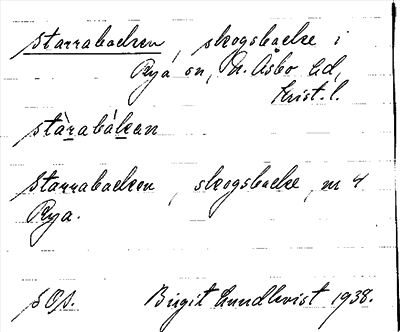 Starrabacken, skogsbacke i
Rya sn, N. Åsbo hd,
Krist. l.
stàrabákan
Starrabacken, skogsbacke, nr 4
Rya.
Birgit Lundkvist 1938.